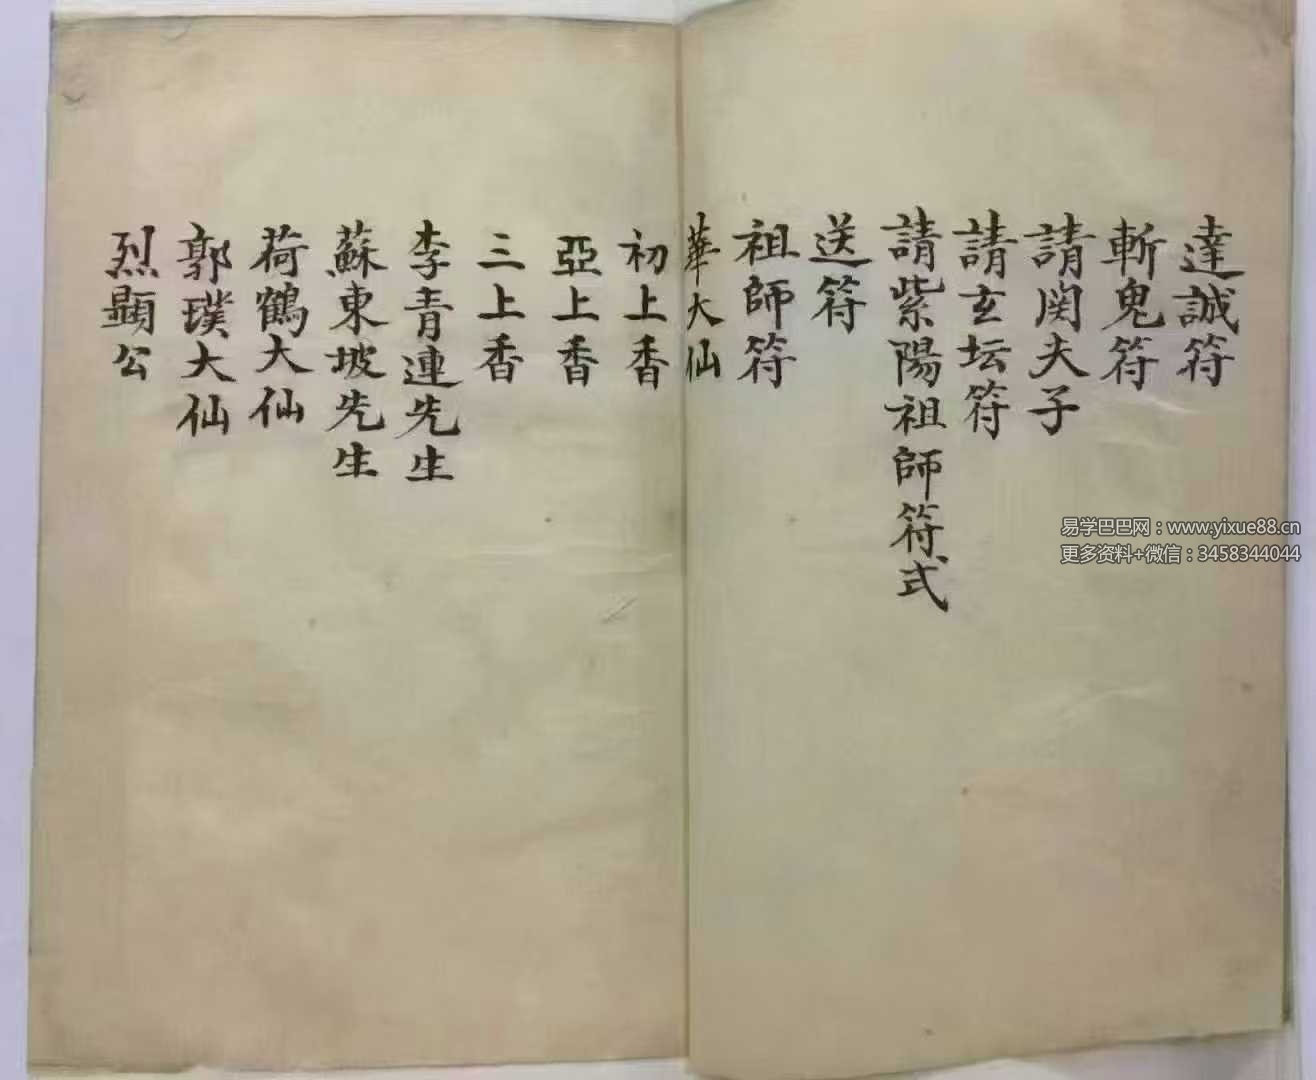 達誠符
斬鬼符
請関夫子
請玄坛符
請紫陽祖師符式
送符
祖師符
華大仙
初上香
亞上香
三上香
李青連先生
蘇東坡先生
荷鶴大仙
郭璞大仙
烈顯公
易学巴巴网：www.yixue88.cn
更多资料+微信：3458344044